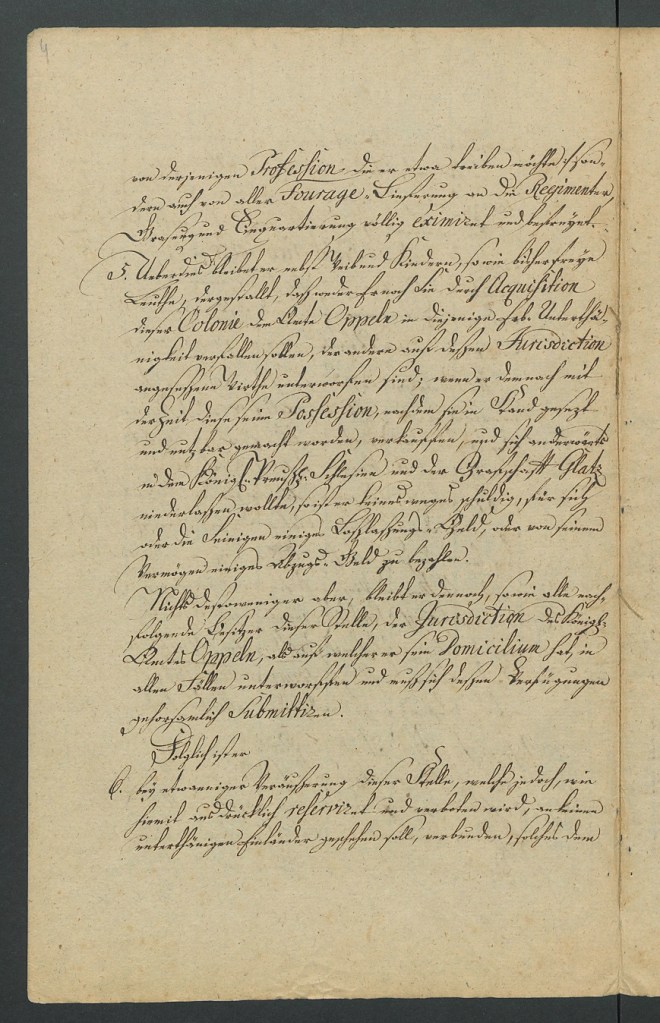 4
von derjenigen Profession die er etwa treiben möchte, son-
dern auch von aller Fourage-Lieferung an die Regimenter,
Grasung und Einquartierung völlig eximiret und befreyet.
5. Ueberdies bleibet er nebst Weib und Kindern, so wie bisher freye
Leuthe, dergestallt, daß weder Er noch sie durch Acquisition
dieser Colonie dem Amte Oppeln in diejenige Erb-Unterthä-
nigkeit verfallen sollen, der andere auf deßen Jurisdiction
angeseßene Wirthe unterworfen sind; wenn er demnach mit
der Zeit diese seine Possession, nachdem sie in Stand gesezt
und nutzbar gemacht worden, verkauffen, und sich anderwärts
in dem Königl. Preuß. Schlesien und der Graffschafft Glatz
niederlaßen wollte, so ist er keinesweges schuldig, für sich
oder die Seinigen einiges Loßlaßungs-Geld, oder von seinem
Vermögen einiges Abzugs-Geld zu bezahlen.
Nichts destoweniger aber, bleibt er dennoch, so wie alle nach-
folgende Besitzer dieser Stelle, der Jurisdiction des Königl.
Amtes Oppeln, als auf welcher er sein Domicilium hat, in
allen Fällen unterworffen und muß sich deßen Verfügungen
gehorsamlich Submittiren.
Folglich ist er
6. bey etwanniger Veräußerung dieser Stelle, welche jedoch, wie
hiemit ausdrücklich reserviret und verboten wird, an keinen
unterthänigen Einländer geschehen soll, verbunden, solches dem